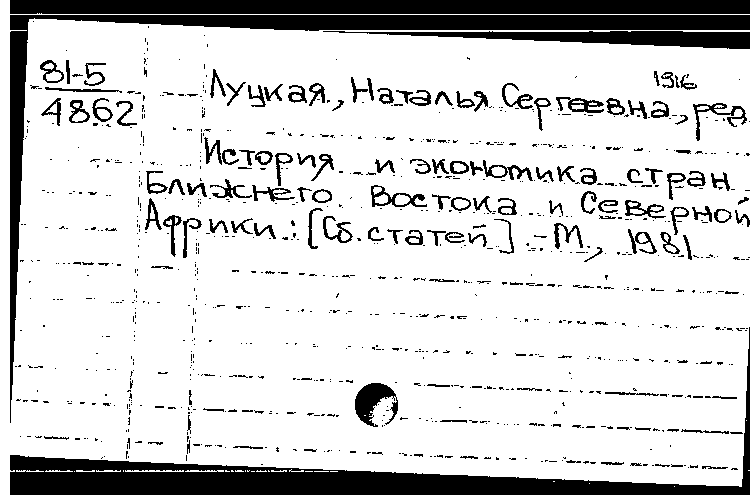 81-5
4862
1916
Луцкая, Наталья Сергеевна, ред.
История и экономика стран
Ближнего Востока и Северной
Африки : [Сб. статей] - М, 1981